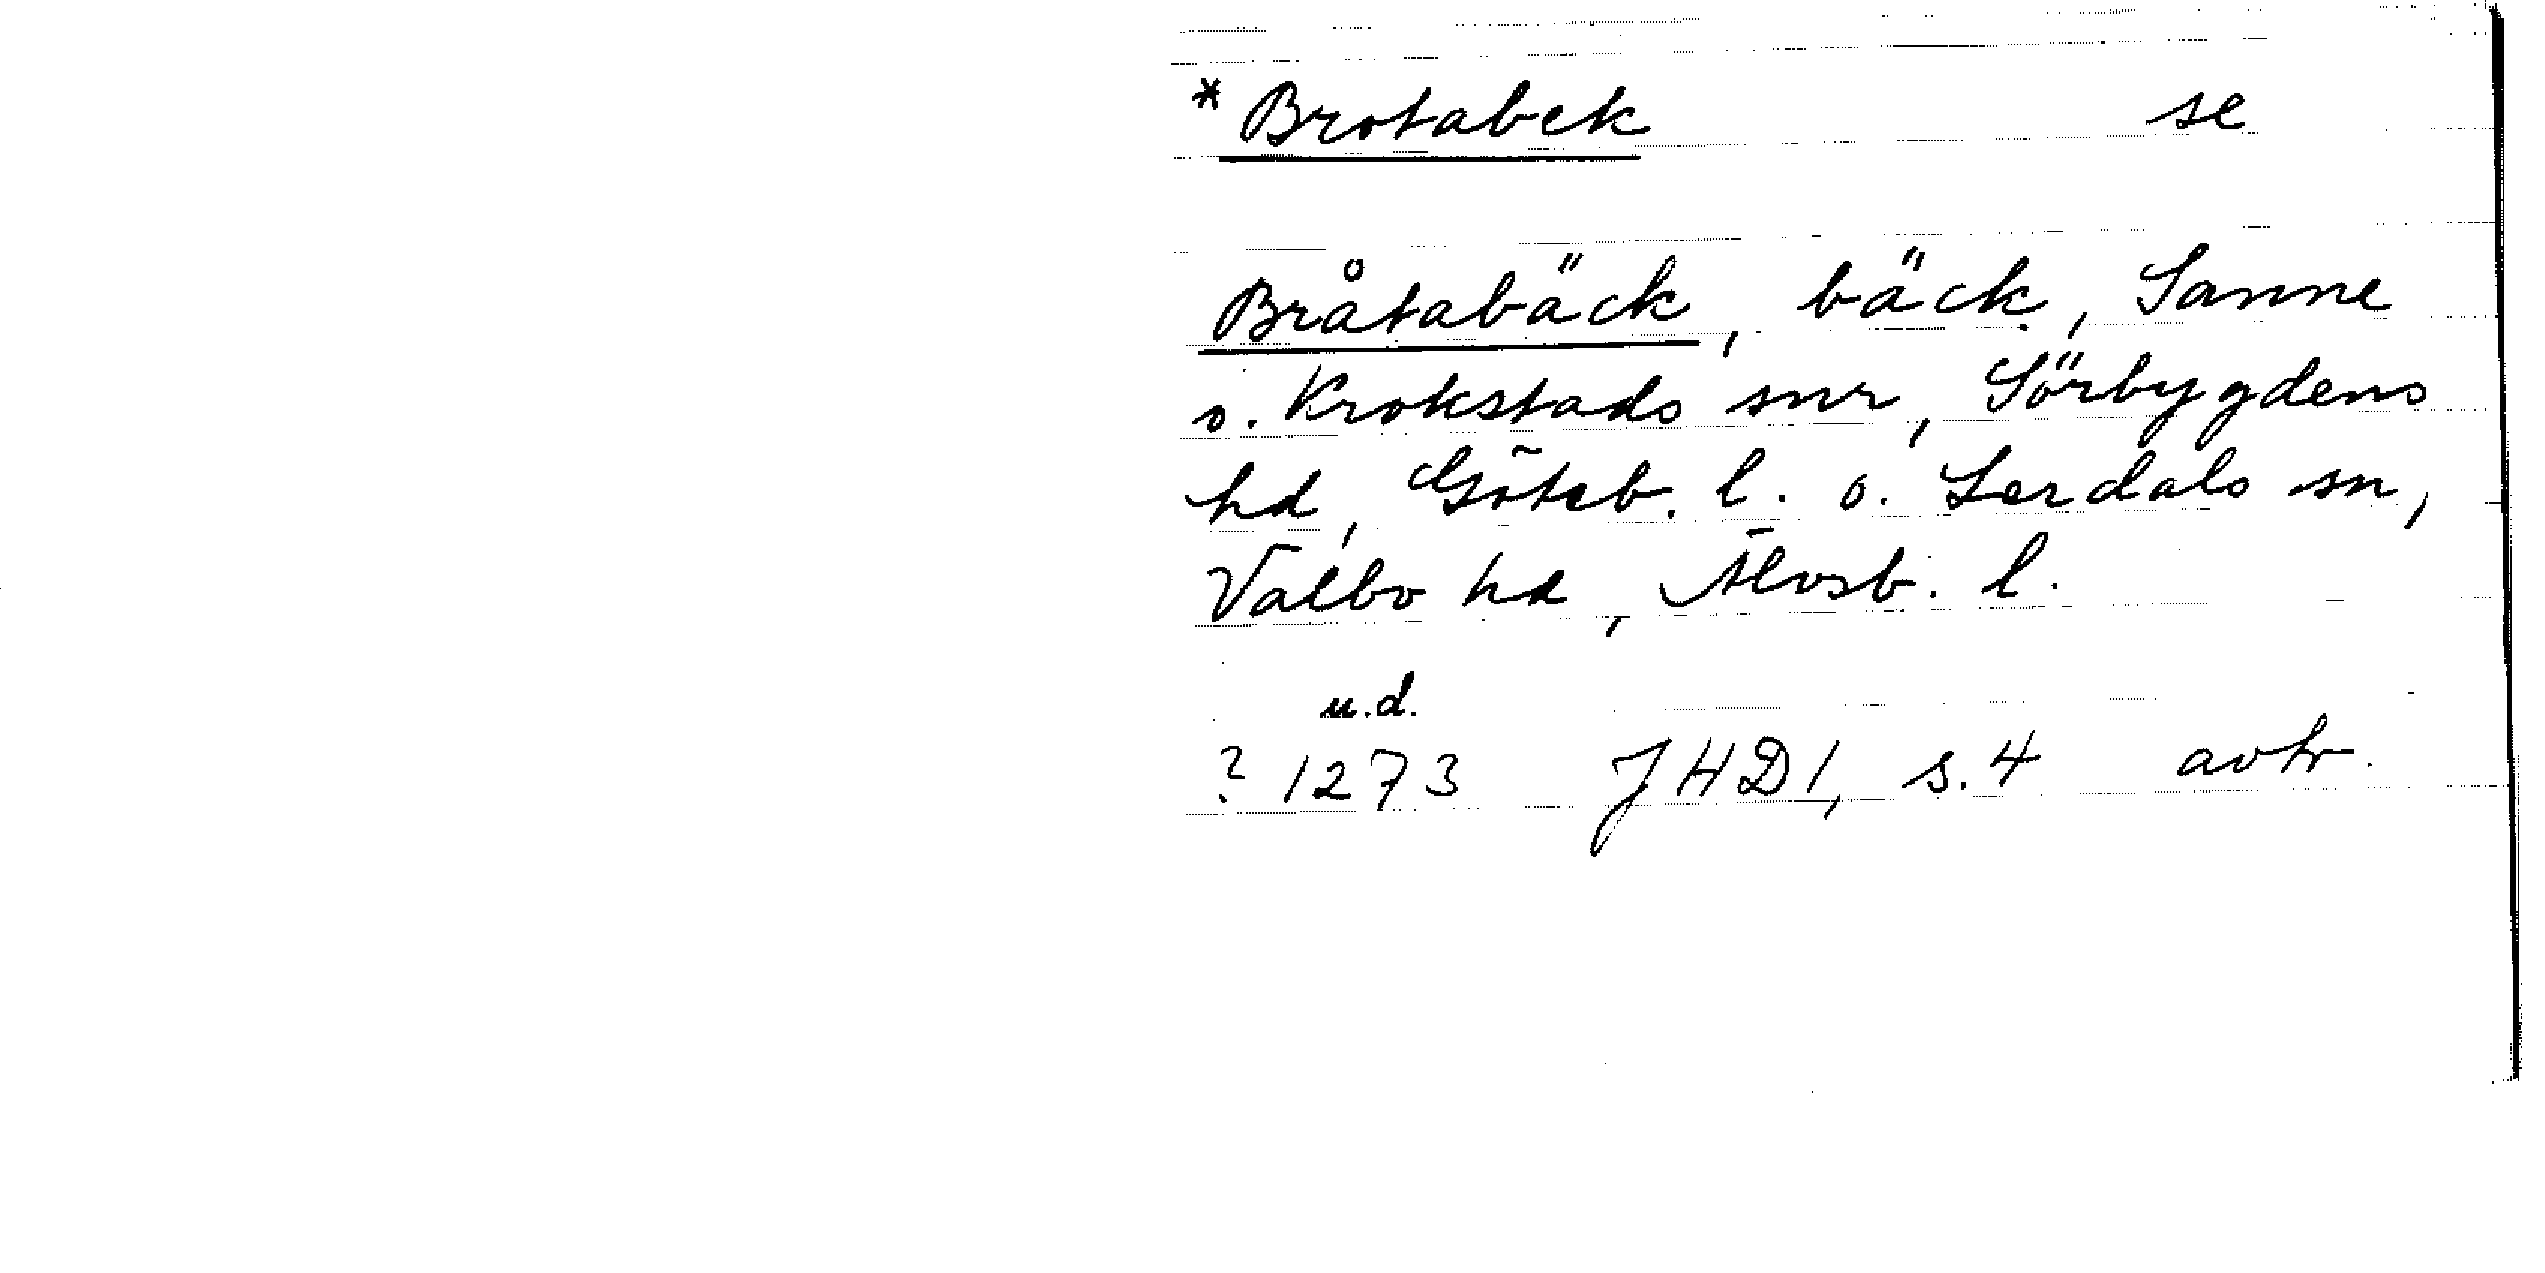 * Brotabek se
Bråtabäck, bäck, Sanne
o. Krokstads snr, Sörbygdens
hd, Göteb. l. o. Lerdals sn,
Valbo hd, Älvsb. l.
u.d.
? 1273 JHD1, s.4 avtr.